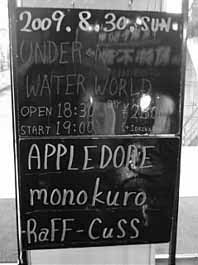 2009.8.30.SUN.
UNDER
WATER WORLD
OPEN 18:30
START 19:00
APPLEDORE
monokuro
RaFF-CuSS